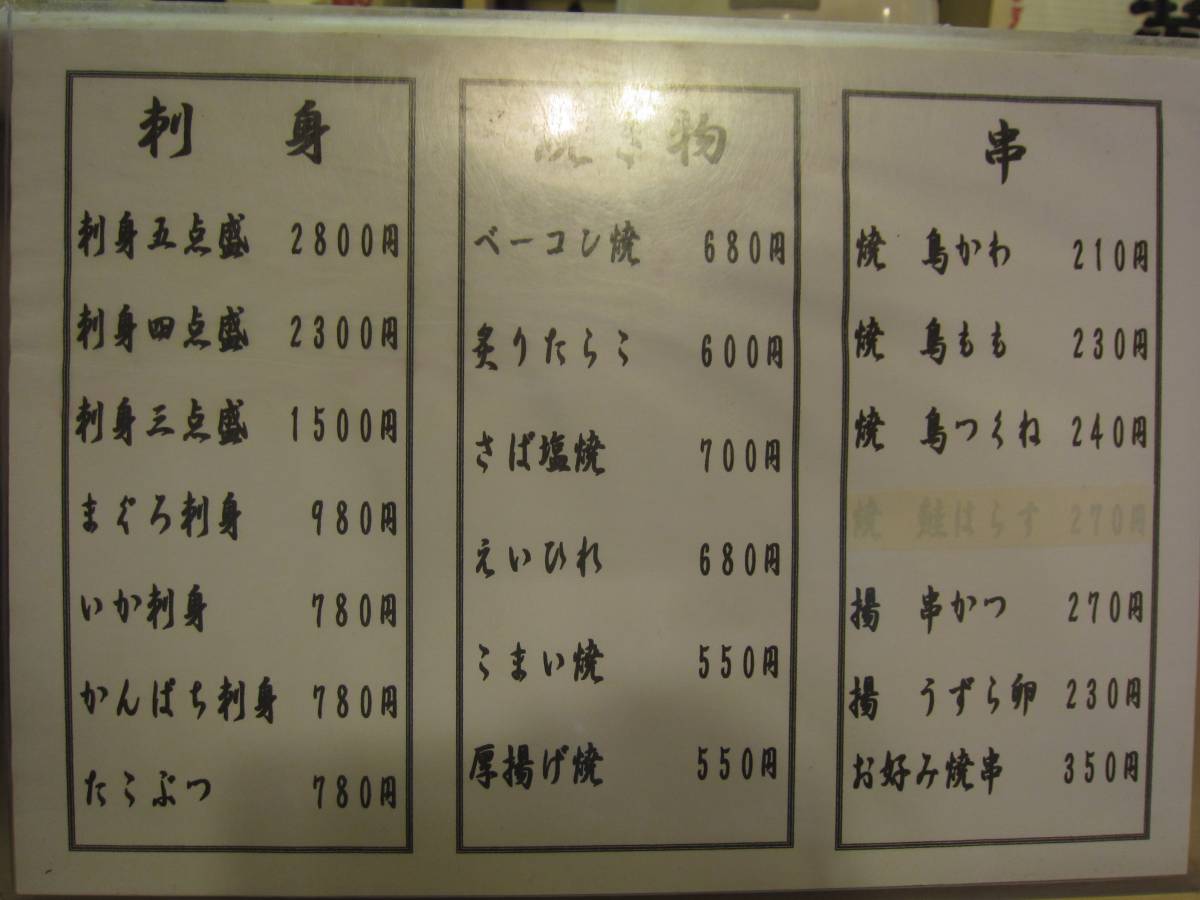 刺 身
刺身五点盛 2800円
刺身四点盛 2300円
刺身三点盛 1500円
まぐろ刺身 980円
いか刺身 780円
かんぱち刺身 780円
たこぶつ 780円
焼き物
ベーコン焼 680円
炙りたらこ 600円
さば塩焼 700円
えいひれ 680円
こまい焼 550円
厚揚げ焼 550円
串
焼 鳥かわ 210円
焼 鳥もも 230円
焼 鳥つくね 240円
焼 鮭はらす 270円
揚 串かつ 270円
揚 うずら卵 230円
お好み焼串 350円